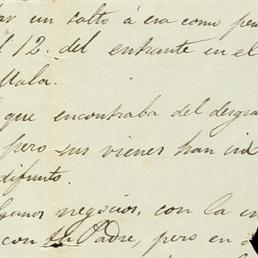 un salto á esa como pen
l 12. del entrante en el
Mala.
que encontraba del desgra
pero sus vienes han ind
difunto.
lgunos negocios, con la in
con su Padre, pero en